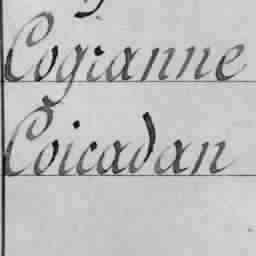 Cogianne
Coicadan